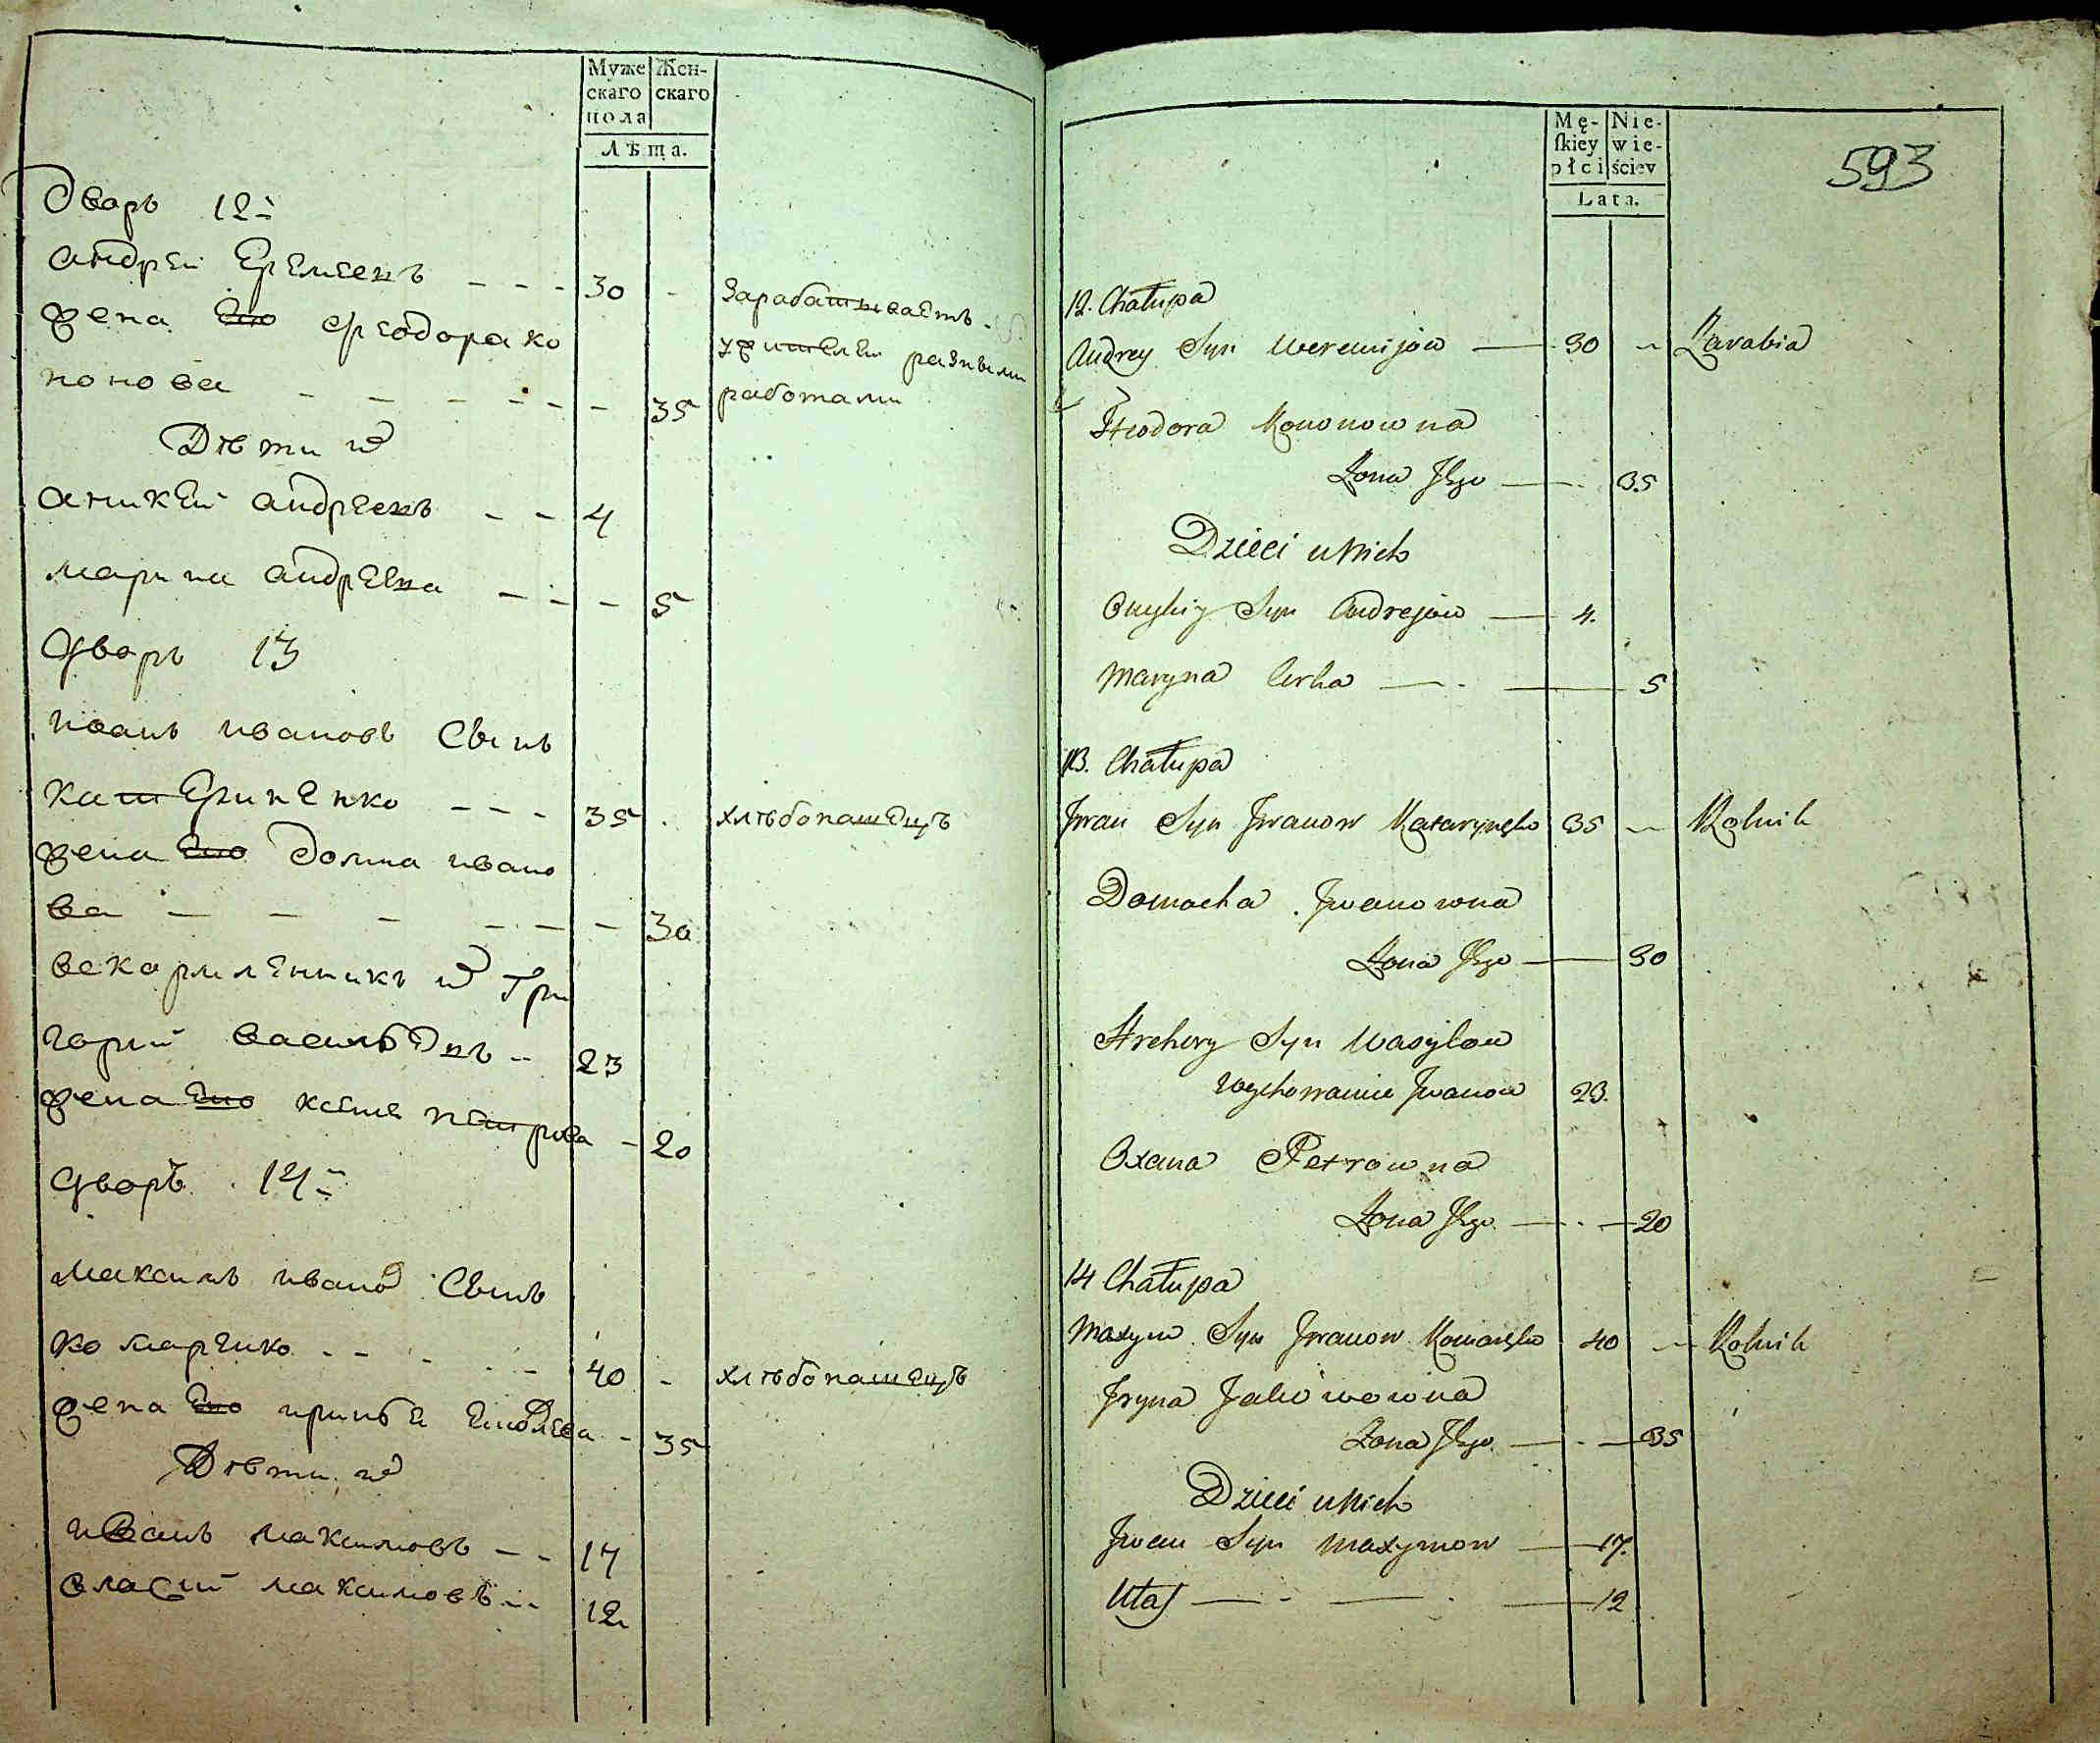 Муже Жен-
скаго скаго
пола
Лѣта.
Дворъ 12й
Андрей Еремеевъ - - - 30 - Зарабатываетъ
жена Ево Феодора Ко
у жителей разными
нонова - - - - - - 35 работами
Дѣти их
Аникей Андреевъ - - 4
Марина Андреева - - - 5
Дворъ 13
Иванъ Ивановъ Сынъ
Катериненко - - - 35 . хлѣбопашецъ
жена Ево Домна Ивано
ва - - - - - - 30
Вскормленникъ их Гри
горий Васильевъ - 23
жена Ево Ксеня Петрова - 20
Дворъ 14й
Максимъ Иванов Сынъ
Комаренко - - - - - 40 - хлѣбопашецъ
жена Ево Ирина - 35
Дѣти их
Иванъ Максимовъ - - 17
Власий Максимовъ - - 12
Mę- Nie-
ſkiey wie-
płci ściey
Lata.
593
12. Chałupa
Andrey Syn Weremijow — 30 — Zarabia
Fteodora Kononowna
Żona Jego — 35
Dzieci u Nich
Onykiy Syn Andrejow — 4.
Maryna Corka — 5
13. Chałupa
Jwan Syn Jwanow Kataryneko 35 — Rolnik
Domacha Jwanowna
Żona Jego — 30
Hrehory Syn Wasylow
wychowaniec Jwanow 23.
Oxana Petrowna
Żona Jego — 20
14 Chałupa
Maxym Syn Jwanow Komareko 40 — Rolnik
Jryna Jakowowna
Żona Jego — 35
Dzieci u Nich
Jwan Syn Maxymow — 17.
Ułas — 12